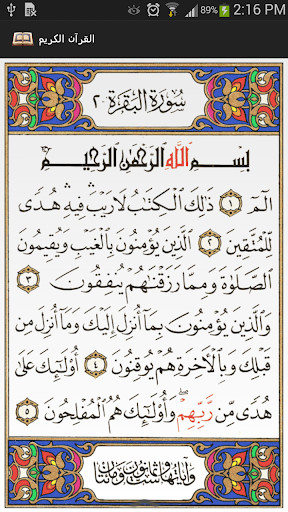 89% 2:16 PM
القرآن الكريم
سُورَةُ البَقَرَةِ ٢
بِسْمِ اللَّهِ الرَّحْمَٰنِ الرَّحِيمِ
الٓمٓ ١ ذَٰلِكَ الْكِتَٰبُ لَا رَيْبَ ۛ فِيهِ ۛ هُدًى
لِّلْمُتَّقِينَ ٢ الَّذِينَ يُؤْمِنُونَ بِالْغَيْبِ وَيُقِيمُونَ
الصَّلَوٰةَ وَمِمَّا رَزَقْنَٰهُمْ يُنفِقُونَ ٣
وَالَّذِينَ يُؤْمِنُونَ بِمَا أُنزِلَ إِلَيْكَ وَمَا أُنزِلَ مِن
قَبْلِكَ وَبِالْآخِرَةِ هُمْ يُوقِنُونَ ٤ أُوْلَٰئِكَ عَلَىٰ
هُدًى مِّن رَّبِّهِمْ ۖ وَأُوْلَٰئِكَ هُمُ الْمُفْلِحُونَ ٥
وَآيَاتُهَا سِتٌّ وَثَمَانُونَ وَمِائَتَانِ